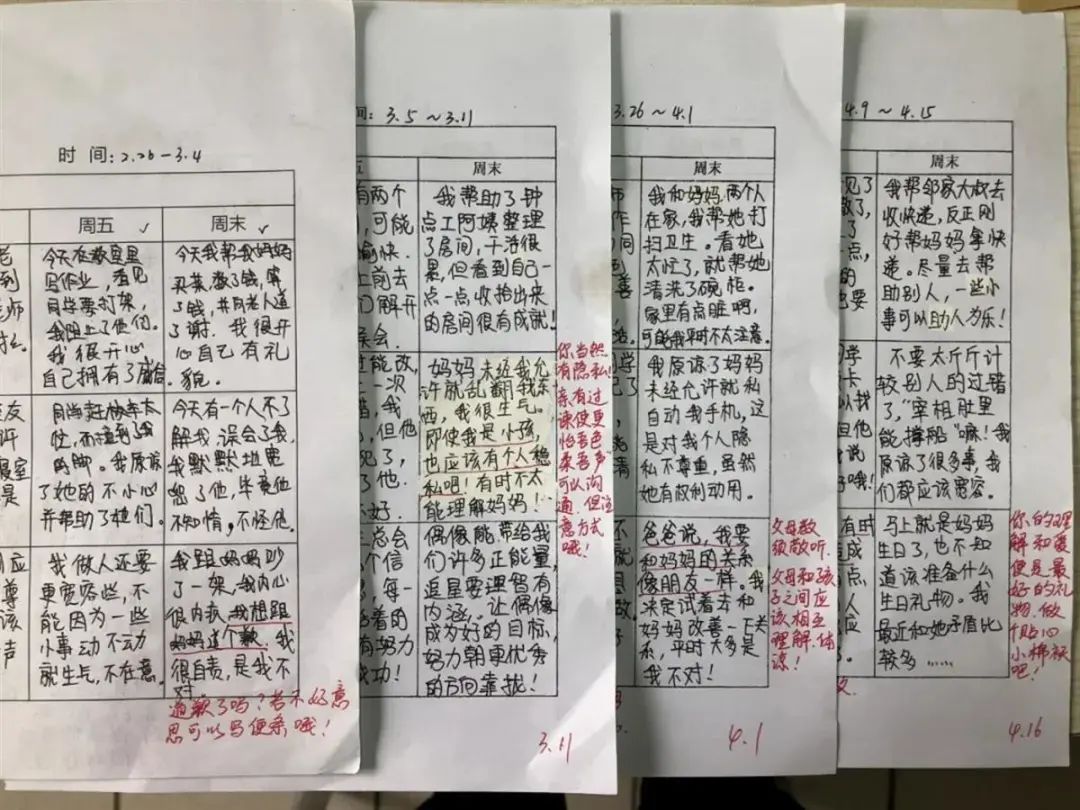 时间:2.26-3.4
周五 ✓
周末 ✓
老
到
老师
什么.
今天在教室里
写作业,看见
同学要打架,
我阻止了他们。
我很开心
自己拥有了威信.
今天我帮我妈妈
买菜,数了钱,算
了钱,并同老人道
了谢.我很开
心自己有礼
貌。
友
许
寝室
是
同学赶校车太
忙,而撞到了我
的脚。我原谅
了她的不小心
并帮助了她们。
今天有一个人不了
解我,误会了我.
我默默地宽
恕了他,毕竟他
不知情,不怪他.
应
尊
该
声
我做人还要
更宽容些,不
能因为一些
小事动不动
就生气,不在意.
我跟妈妈吵
了一架,我内心
很内疚,我想跟
妈妈道个歉.我
很自责,是我不
对.
道歉了吗?若不好意
思可以写便条哦!
间: 3.5~3.11
五
周末
有两个
,可能
愉快.
上前去
们解开
误会.
我帮助了钟
点工阿姨整理
了房间,干活很
累,但看到自己一
点一点收拾出来
的房间很有成就!
过能改,
一次
错,我
,但他
死了,
了他.
不好.
妈妈未经我允
许就乱翻我东
西,我很生气。
即使我是小孩,
也应该有个人隐
私吧!有时不太
能理解妈妈!
你当然
有隐私!
“亲有过
谏使更
怡吾色
柔吾声”
可以沟
通.但注
意方式
哦!
总会
个信
每一
着的
有努力
成功!
偶像能带给我
们许多正能量,
追星要理智有
内涵,让偶像
成为好的目标,
努力朝更优秀
的方向靠拢!
3.11
3.26~4.1
周末
师
作
同
到
善
我和妈妈两个人
在家,我帮她打
扫卫生。看她
太忙了,就帮她
清洗了碗柜。
家里有点脏啊,
可能我平时不太注意.
同学
己了
我原谅了妈妈
未经允许就私
自动我手机,这
是对我个人隐
私不尊重,虽然
她有权利动用。
不
就
爸爸说,我要
和妈妈的关系
像朋友一样。我
决定试着去和
妈妈改善一下关
系,平时大多是
我不对!
父母教
须敬听.
父母和孩
子之间应
该相互
理解.体
谅!
4.1
4.9~4.15
周末
见了
敬了,
了
一点,
的
也要
我帮邻家大叔去
收快递,反正刚
好帮妈妈拿快
递。尽量去帮
助别人,一些小
事可以助人为乐!
同学
卡
以我
但他
说
好哦!
不要太斤斤计
较别人的过错
了,“宰相肚里
能撑船”嘛!我
原谅了很多事,我
们都应该宽容。
有时
成
点,
人
应
马上就是妈妈
生日了,也不知
道该准备什么
生日礼物。我
最近和她矛盾比
较多……
你的理
解和爱
便是最
好的礼
物.做
个贴心
小棉袄
吧!
4.16